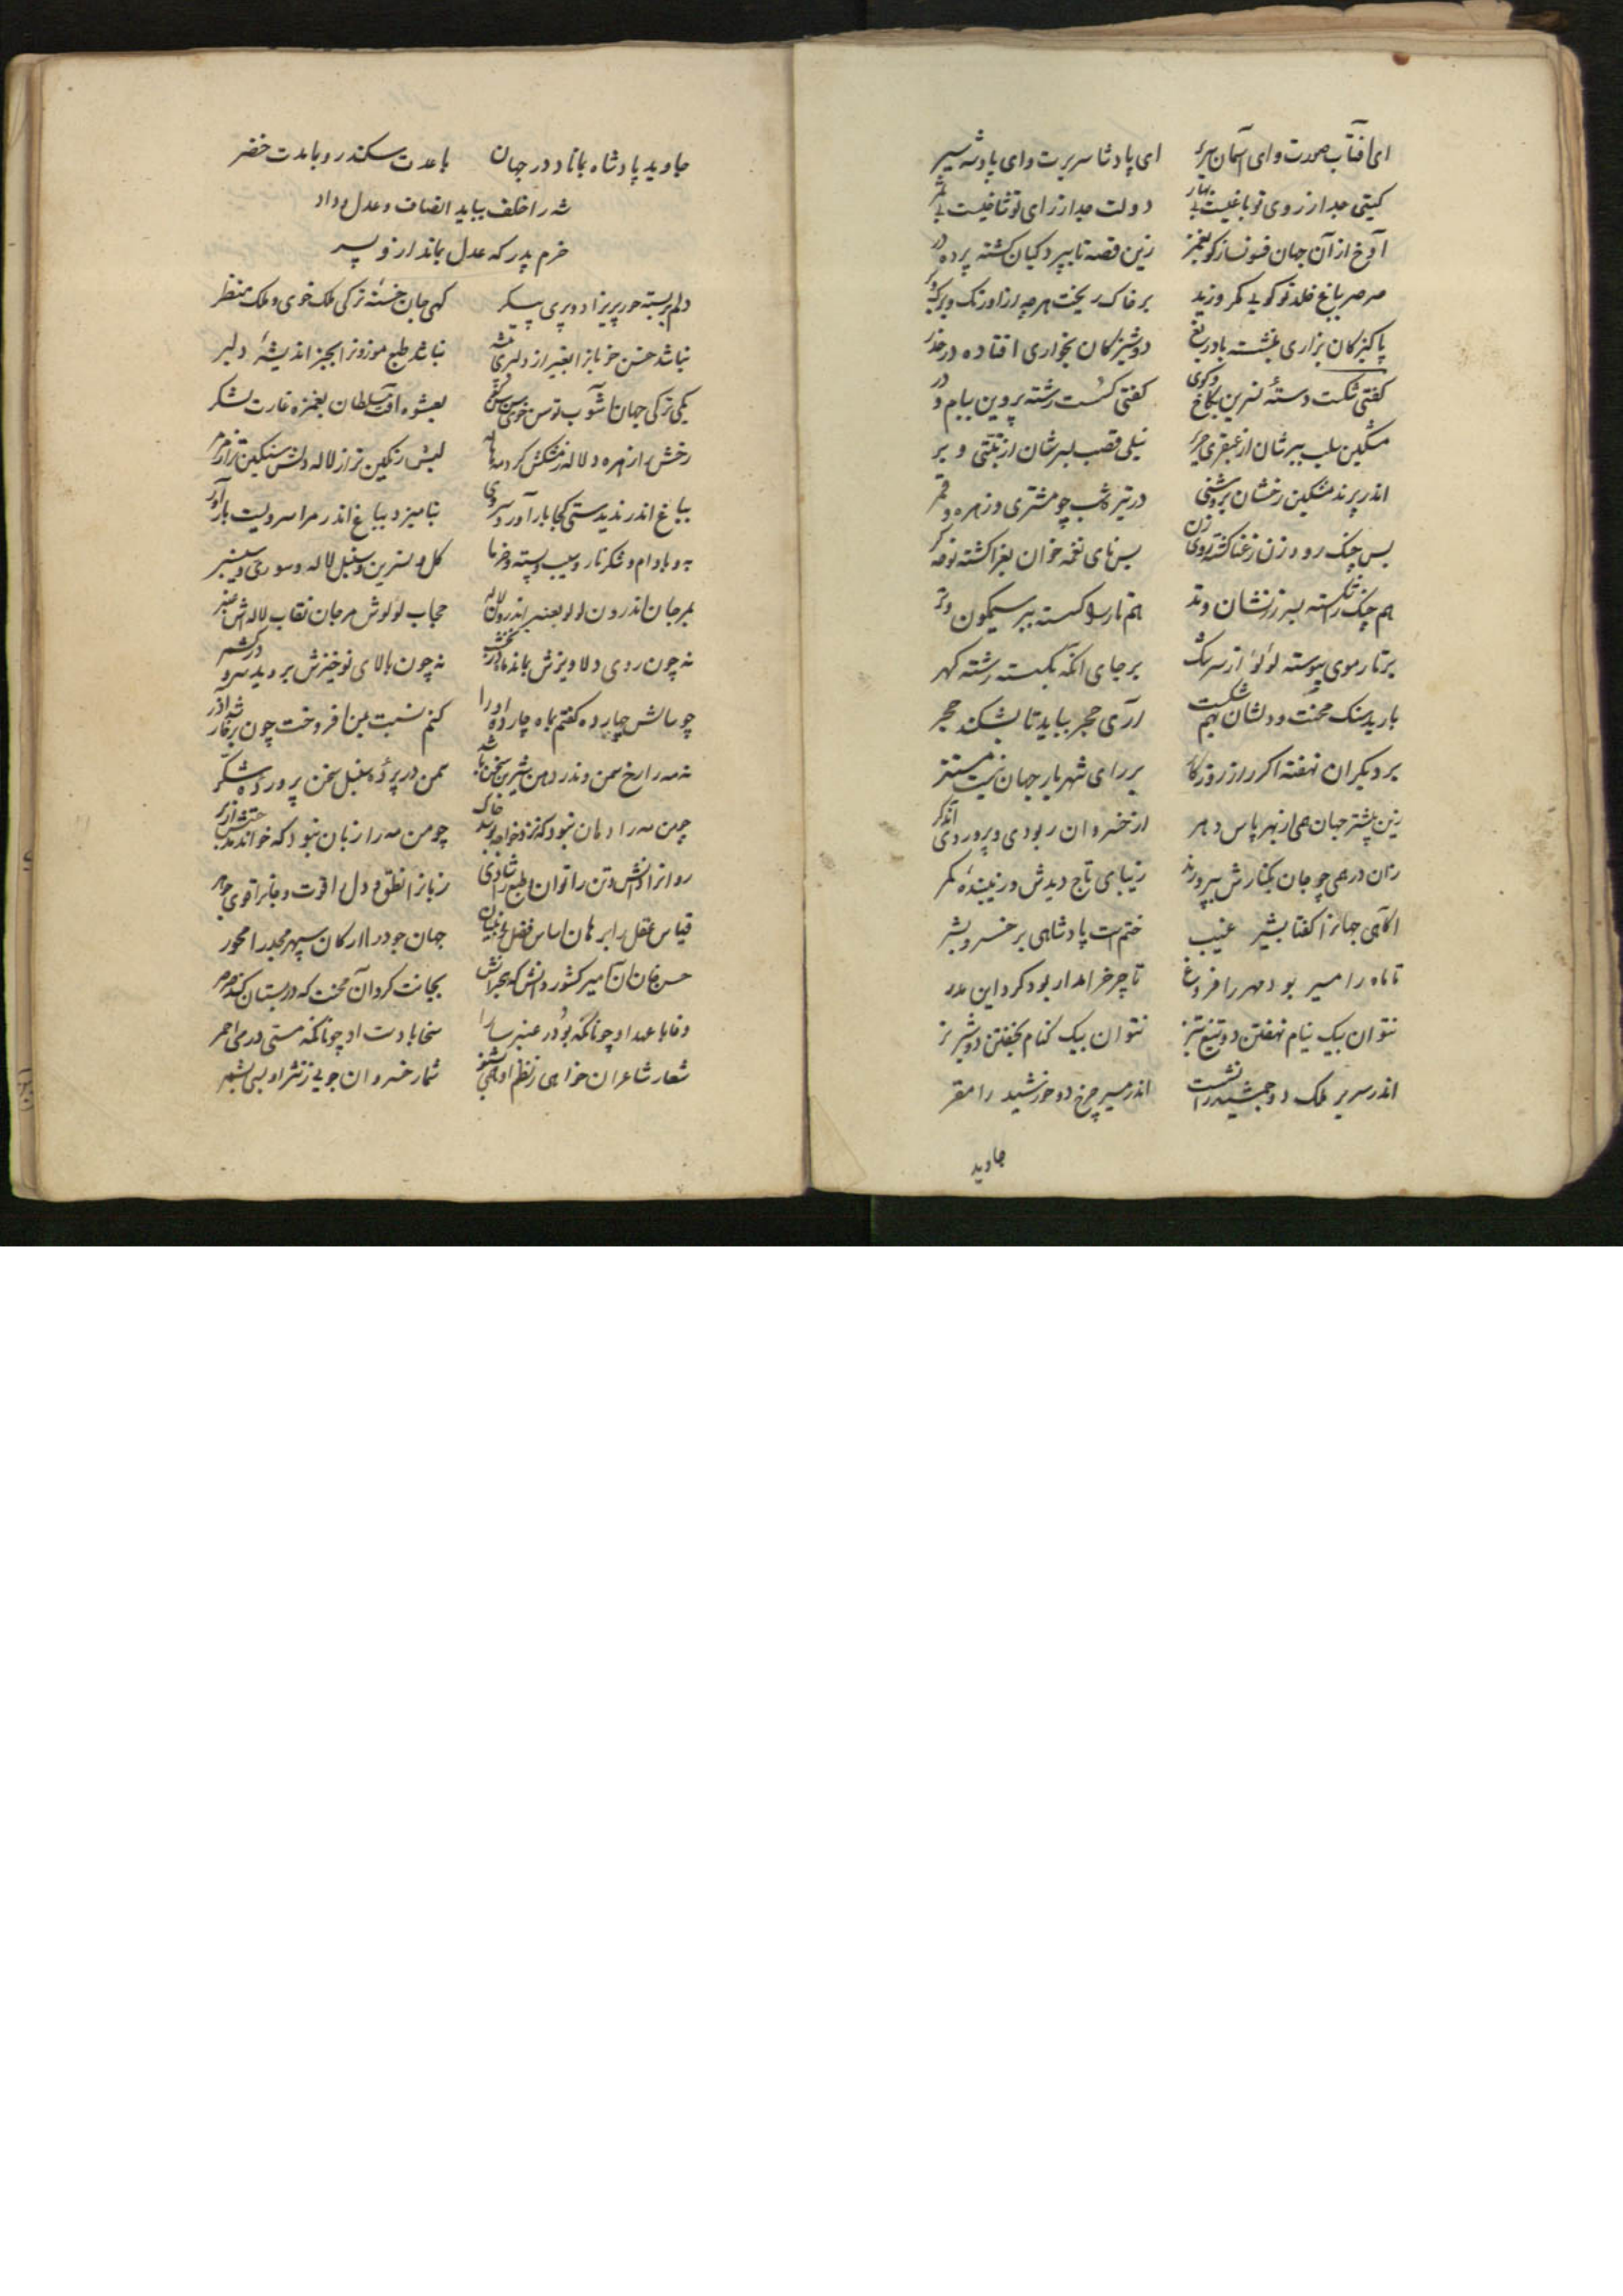 ای آفتاب صورت و ای آسمان سریر ای پادشا سریرت و ای پادشه سیر
کیتی جدا ز روی تو باغیست بی بهار دولت جدا ز رای تو شاخیست بی ثمر
آوخ از آن جهان فسونساز کو بغمز زین قصه تا بپردکیان کشته پرده در
صرصر بباغ خلد تو کویی مکر وزید بر خاک ریخت هرچه ز اورنک و برک و بر
پاکیزکان بزاری بنشسته با دریغ دوشیزکان بخواری افتاده در خدر
کفتی شکست دسته نسرین بکاخ و کوی کفتی کسست رشته پروین ببام و در
مشکین سلب ببرشان از عبقری حریر نیلی قصب بسرشان از تبتی و بر
اندر پرند مشکین رخشان بروشنی در تیره شب چو مشتری و زهره و قمر
بس چنک رود زن ز غنا کشته روی زن بس نای نغمه خوان بغرا کشته نوحه کر
هم چنک را شکسته بسر زرنشان وتد هم تار را کسسته ببر سیمکون وتر
بر تار موی پیوسته لؤلؤ از سرشک بر جای آنکه بکسسته رشته کهر
بارید سنک محنت و دلشان بهم شکست آری حجر بباید تا بشکند حجر
بر دیکران نهفته اکر راز روزکار بر رای شهریار جهان نیست مستتر
زین پیشتر جهان همی از بهر پاس دهر از خسروان ربودی و پروردی
زان در همی چو جان بکنارش بپرورند زیبای تاج دیدش و زیبنده کمر
آکاهی جهانرا کفتا بشیر غیب ختم است پادشاهی بر خسرو بشر
تا ماه را مسیر بود مهر را فروغ تا چرخ را مدار بود کرد این مدر
نتوان بیک نیام نهفتن دو تیغ تیز نتوان بیک کنام بخفتن دو شیر نر
اندر سریر ملک دو جمشید را نشست اندر مسیر چرخ دو خورشید را مقر
جاوید
جاوید پادشاه بماناد در جهان با عدت سکندر و با مدت خضر
شه را خلف بباید انصاف و عدل و داد
خرم پدر که عدل بماند از و پسر
دلم بربسته حور پریزاد و پری پیکر کهی جان خسته ترکی ملک خوی و ملک منظر
نباشد حسن خوبانرا بغیر از دلبری پیشه نباشد طبع موزونرا بجز اندیشهٔ دلبر
یکی ترکی جهان آشوب توسن خوی بعشوه آفت سلطان بغمزه غارت لشکر
رخش از زهره و لاله ز مشکش کرد مه هاله لبش رنکین تر از لاله دلش سنکین تر از مرمر
بباغ اندر ندیدستی کجا بار آورد سروی بنامیزد بباغ اندر مرا سرویست بار آور
به و بادام و شکر نار و سیب و پسته و خرما کل و نسرین و سنبل لاله و سوری و سیسنبر
بمرجان اندرون لولو بعنبر اندرون لاله حجاب لولوش مرجان نقاب لاله اش عنبر
نه چون روی دلاویزش بماند ماه در نخشب نه چون بالای نوخیزش بروید سرو در کشمر
چو سالش چارده کفتم بماه چارده او را کنم نسبت بمن افروخت چون رخسار شد آذر
نه مه را رخ سمن وندر دهن شیرین سخن باشد سمن در پردهٔ سنبل سخن پروردهٔ شکر
چو من مه را دهان نبود که نزد خواجه بوسد خاک چو من مه را زبان نبود که خواند مدحتش از بر
روانرا دانش و تن را توان و طبع را شادی زبانرا نطق و دل را قوت و جانرا قوی جوهر
قیاس عقل را برهان اساس فضل را بنیان جهان جود را ارکان سپهر مجد را محور
حسن خان آن امیر کشور دانش که هجرانش بجانت کرد آن محنت که در بستان کند صرصر
وفا با عهد او چونانکه بو در عنبر سارا سخا با دست او چونانکه مستی در می احمر
شعار شاعران خواهی ز نظم او همی بشنو شمار خسروان جویی ز نثر او بسی بشمر